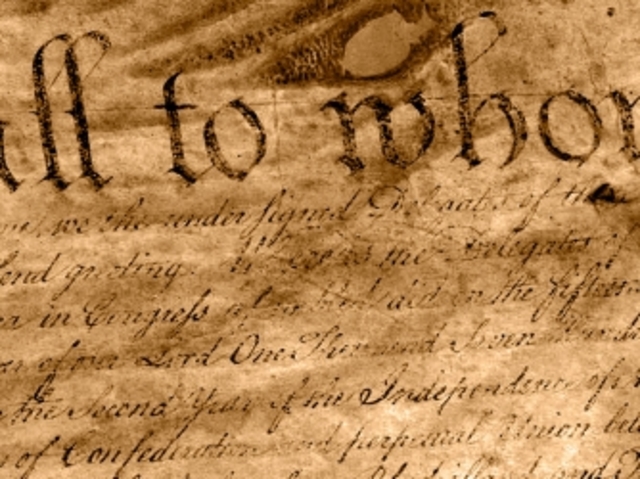 all to whom
we the undersigned Delegates of the
send greeting. Whereas the Delegates of
in Congress assembled did on the fifteenth
of our Lord One Thousand Seven Hundred
the Second Year of the Independence of
of Confederation and perpetual Union